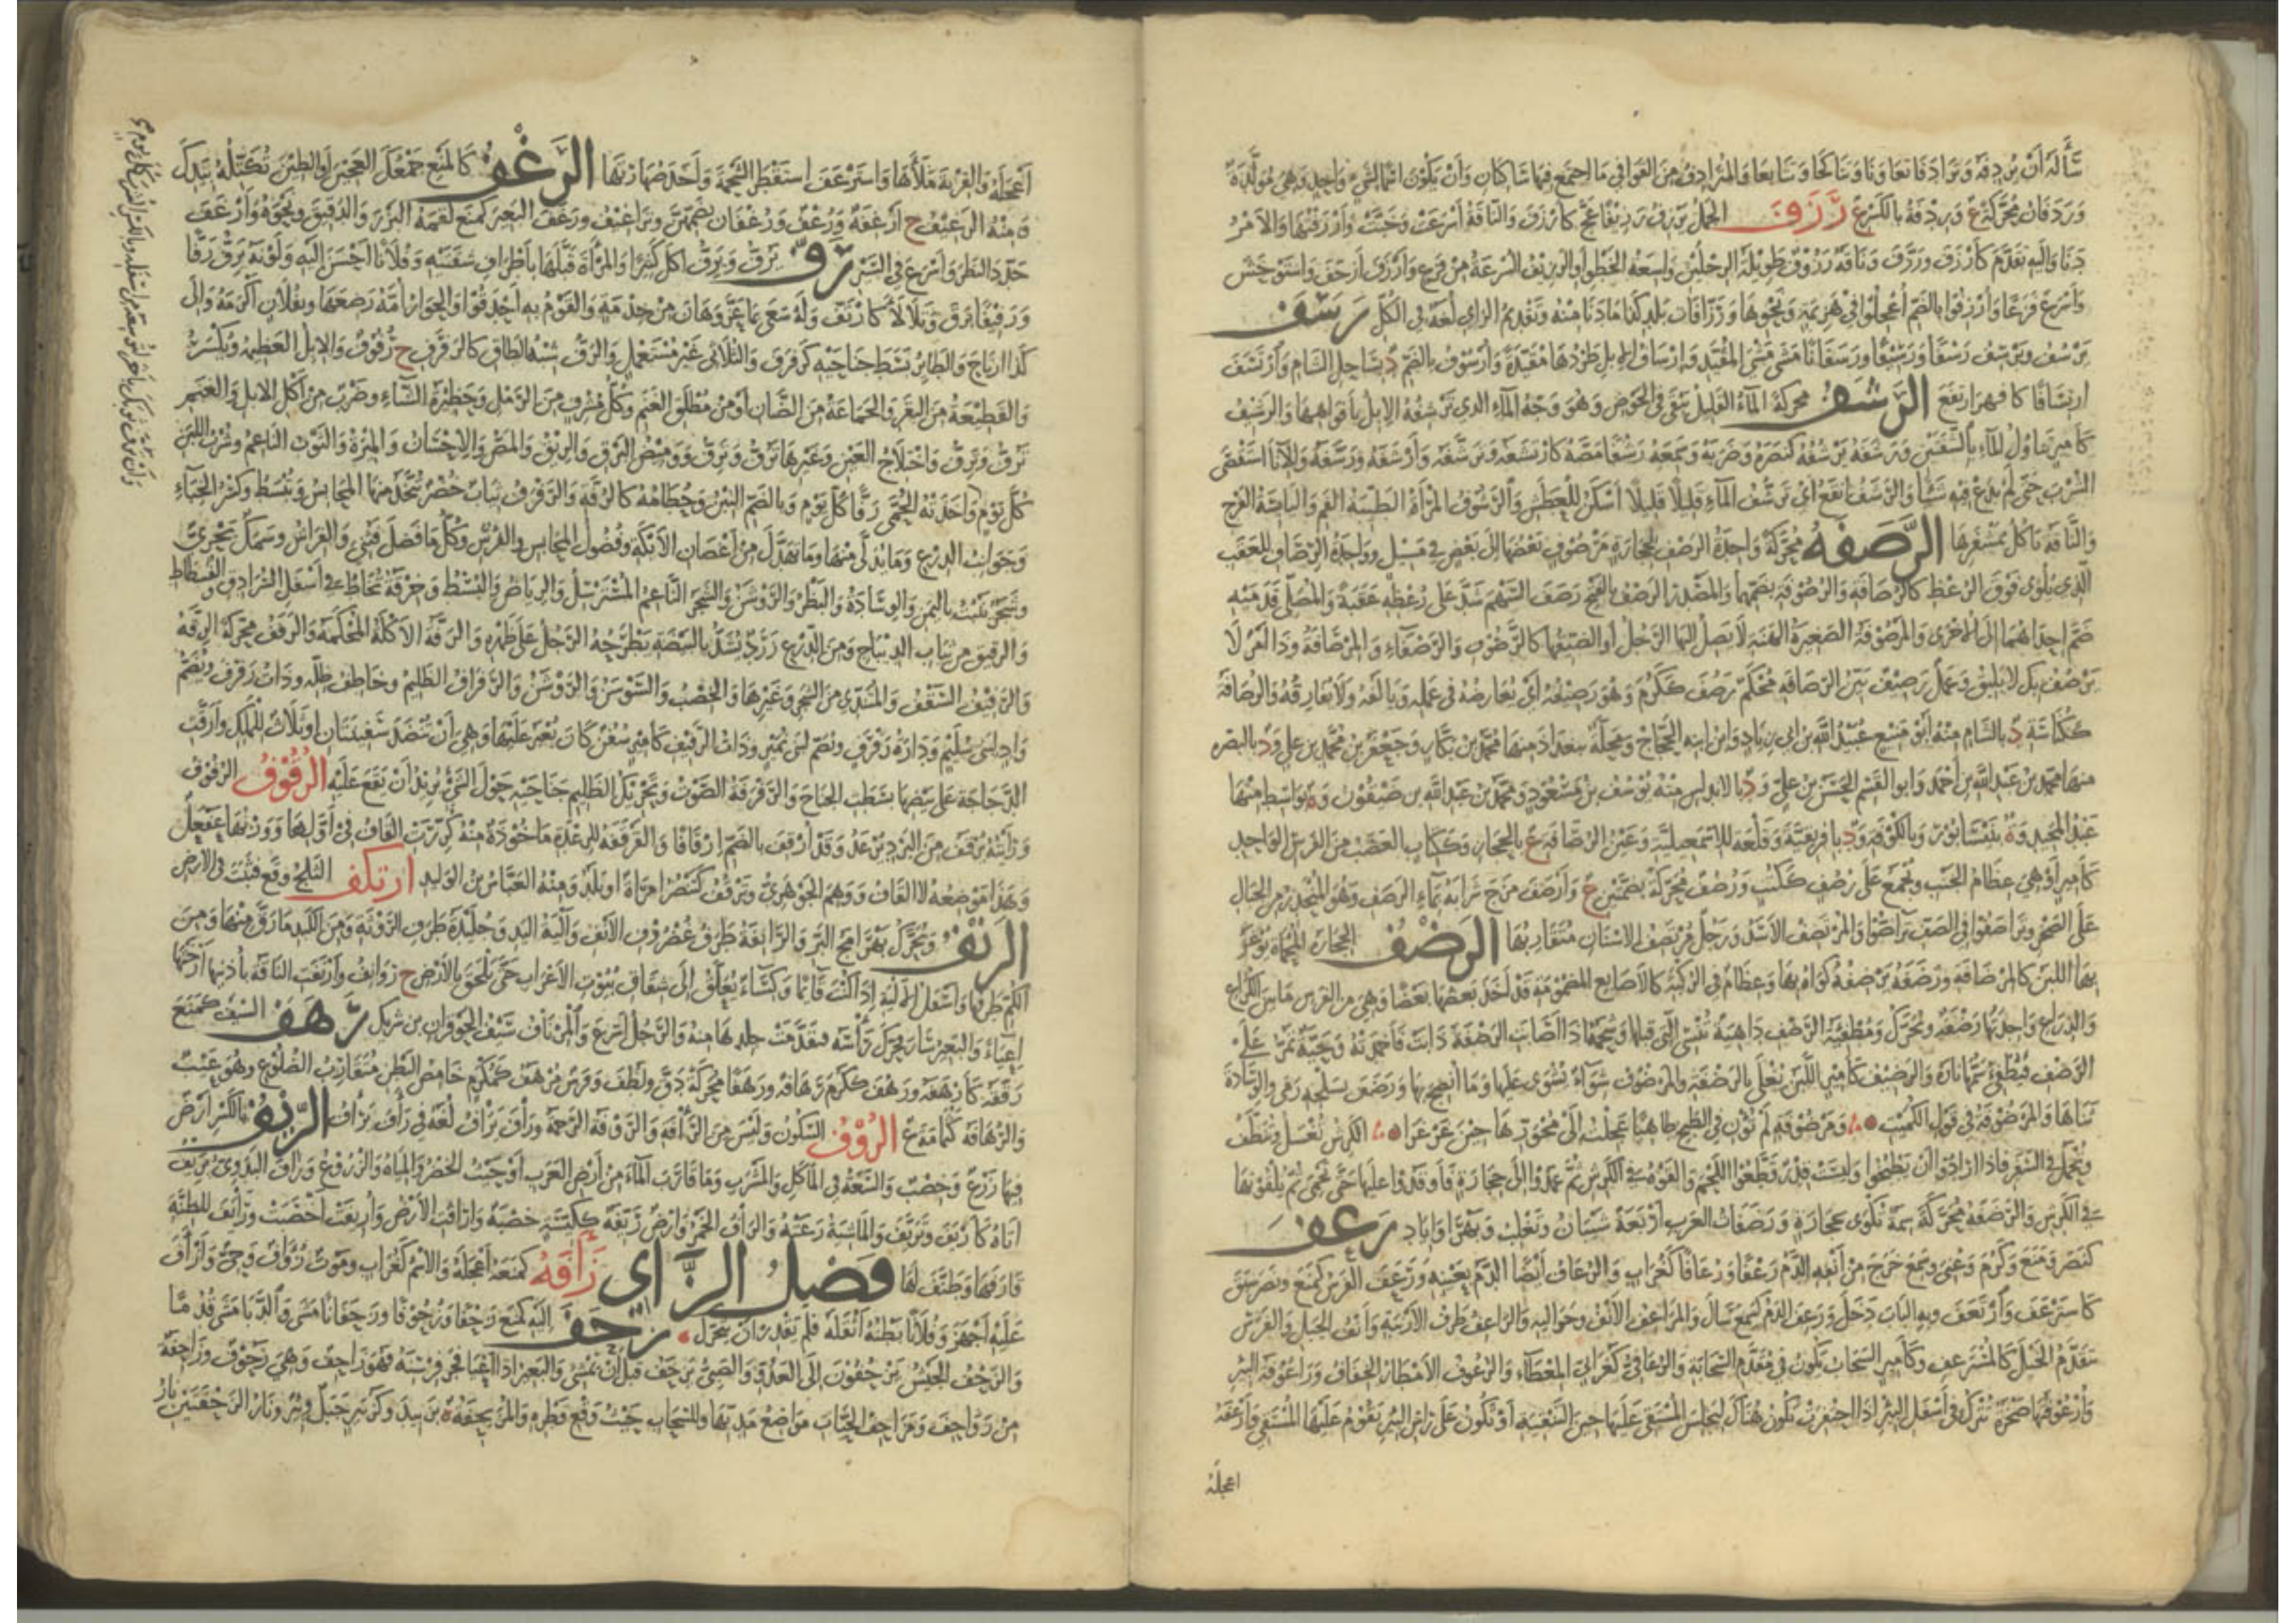 سَأَلَهُ أَنْ يُرْدِفَهُ وَتَرَادَفَا تَعَاوَنَا وَتَنَاكَحَا وَتَتَابَعَا وَالمُتَرَادِفُ مِنَ القَوَافِي مَا اجْتَمَعَ فِيهَا سَاكِنَانِ وَأَنْ يَكُونَ أَسْمَاءٌ لِشَيْءٍ وَاحِدٍ وَهِيَ مُوَلَّدَةٌ
وَرَدَفَانُ مُحَرَّكَةً ع وَرِدْفَةُ بِالكَسْرِ ع رَزَفَ الجَمَلُ يَرْزِفُ رَزِيفًا عَجَّ كَأَرْزَفَ وَالنَّاقَةُ أَسْرَعَتْ وَخَبَّتْ وَأَرْزَفْتُهَا وَالأَمْرُ
دَنَا وَإِلَيْهِ تَقَدَّمَ كَأَرْزَفَ وَرَزَّفَ وَنَاقَةٌ رَزُوفٌ طَوِيلَةُ الرِّجْلَيْنِ وَاسِعَةُ الخَطْوِ أَوِ الرَّزِيفُ السُّرْعَةُ مِنْ فَزَعٍ وَأَرْزَفَ أَرْجَفَ وَاسْتَوْحَشَ
وَأَسْرَعَ فَزَعًا وَأُرْزِفُوا بِالضَّمِّ أُعْجِلُوا فِي هَزِيمَةٍ وَنَحْوِهَا وَرَزَّافَاتُ بَلَدِ كَذَا مَا دَنَا مِنْهُ وَتَقْدِيمُ الزَّايِ لُغَةٌ فِي الكُلِّ رَسَفَ
يَرْسُفُ وَيَرْسِفُ رَسْفًا وَرَسِيفًا وَرَسَفَانًا مَشَى مَشْيَ المُقَيَّدِ وَإِرْسَافُ الإِبِلِ طَرْدُهَا مُقَيَّدَةً وَأَرْسُوفُ بِالضَّمِّ د بِسَاحِلِ الشَّامِ وَارْتَسَفَ
ارْتِسَافًا كَاكْفَهَرَّ ارْتَفَعَ الرَّشَفُ مُحَرَّكَةً المَاءُ القَلِيلُ يَبْقَى فِي الحَوْضِ وَهُوَ وَجْهُ المَاءِ الَّذِي تَرْشُفُهُ الإِبِلُ بِأَفْوَاهِهَا وَالرَّشِيفُ
كَأَمِيرٍ تَنَاوُلُ المَاءِ بِالشَّفَتَيْنِ وَرَشَفَهُ يَرْشُفُهُ كَنَصَرَهُ وَضَرَبَهُ وَسَمِعَهُ رَشْفًا مَصَّهُ كَارْتَشَفَهُ وَتَرَشَّفَهُ وَأَرْشَفَهُ وَرَشَّفَهُ وَالإِنَاءَ اسْتَقْصَى
الشُّرْبَ حَتَّى لَمْ يَدَعْ فِيهِ شَيْئًا وَالرَّشْفُ أَنْقَعُ أَيْ تَرَشُّفُ المَاءِ قَلِيلًا قَلِيلًا أَسْكَنُ لِلْعَطَشِ وَالرَّشُوفُ المَرْأَةُ الطَّيِّبَةُ الفَمِ وَاليَابِسَةُ الفَرْجِ
وَالنَّاقَةُ تَأْكُلُ بِمِشْفَرِهَا الرَّصَفَةُ مُحَرَّكَةً وَاحِدَةُ الرَّصَفِ لِحِجَارَةٍ مَرْصُوفٍ بَعْضُهَا إِلَى بَعْضٍ فِي مَسِيلٍ وَوَاحِدَةُ الرِّصَافِ لِلْعَقَبِ
الَّذِي يُلْوَى فَوْقَ الرُّعْظِ كَالرُّصَافَةِ وَالرُّصُوفَةِ بِضَمِّهِمَا وَالمَصْدَرُ الرَّصْفُ بِالفَتْحِ رَصَفَ السَّهْمَ شَدَّ عَلَى رُعْظِهِ عَقَبَةً وَالمُصَلِّي قَدَمَيْهِ
ضَمَّ إِحْدَاهُمَا إِلَى الأُخْرَى وَالمَرْصُوفَةُ الصَّغِيرَةُ الهَنَةِ لَا يَصِلُ إِلَيْهَا الرَّجُلُ أَوِ الضَّيِّقَتُهَا كَالرَّصُوفِ وَالرَّصْفَاءِ وَالمِرْصَافَةُ وَذَا أَمْرٌ لَا
يَرْصُفُ بِكَ لَا يَلِيقُ وَعَمَلٌ رَصِيفٌ بَيِّنُ الرَّصَافَةِ مُحْكَمٌ رَصُفَ كَكَرُمَ وَهُوَ رَصِيفُهُ أَيْ يُعَارِضُهُ فِي عَمَلِهِ وَيَأْلَفُهُ وَلَا يُفَارِقُهُ وَالرُّصَافَةُ
كَكُنَاسَةٍ د بِالشَّامِ مِنْهُ أَبُو مَنِيعٍ عُبَيْدُ اللهِ بْنُ أَبِي زِيَادٍ وَابْنُ ابْنِهِ الحَجَّاجُ وَمَحَلَّةٌ بِبَغْدَادَ مِنْهَا مُحَمَّدُ بْنُ بَكَّارٍ وَجَعْفَرُ بْنُ مُحَمَّدِ بْنِ عَلِيٍّ وَد بِالبَصْرَةِ
مِنْهَا مُحَمَّدُ بْنُ عَبْدِ اللهِ بْنِ أَحْمَدَ وَأَبُو القَسِمِ الحَسَنُ بْنُ عَلِيٍّ وَد بِالأَنْدَلُسِ مِنْهُ يُوسُفُ بْنُ مَسْعُودٍ وَمُحَمَّدُ بْنُ عَبْدِ اللهِ بْنِ ضَيْفُونَ وَة بِوَاسِطَ مِنْهَا
عَبْدُ المَجِيدِ وَة بِنَيْسَابُورَ وَبِالكُوفَةِ وَد بِإِفْرِيقِيَّةَ وَقَلْعَةٌ لِلإِسْمَعِيلِيَّةِ وَعَيْنُ الرُّصَافَةِ ع بِالحِجَازِ وَكَكِتَابٍ العَصَبُ مِنَ الفَرَسِ الوَاحِدُ
كَأَمِيرٍ أَوْ هِيَ عِظَامُ الجَنْبِ وَتُجْمَعُ عَلَى رُصُفٍ كَكُتُبٍ وَرُصَفُ مُحَرَّكَةً بِضَمَّتَيْنِ ع وَأَرْصَفَ مَزَجَ شَرَابَهُ بِمَاءِ الرَّصَفِ وَهُوَ المُنْحَدِرُ مِنَ الجِبَالِ
عَلَى الصَّخْرِ وَتَرَاصَفُوا فِي الصَّفِّ تَرَاصُّوا وَالمُرْتَصِفُ الأَسَدُ وَرَجُلٌ مُرْتَصِفُ الأَسْنَانِ مُتَقَارِبُهَا الرَّضْفُ الحِجَارَةُ المُحْمَاةُ يُوغَرُ
بِهَا اللَّبَنُ كَالمِرْضَافَةِ وَرَضَفَهُ يَرْضِفُهُ كَوَاهُ بِهَا وَعِظَامٌ فِي الرُّكْبَةِ كَالأَصَابِعِ المَضْمُومَةِ قَدْ أَخَذَ بَعْضُهَا بَعْضًا وَهِيَ مِنَ الفَرَسِ مَا بَيْنَ الكُرَاعِ
وَالذِّرَاعِ وَاحِدَتُهَا رَضْفَةٌ وَتُحَرَّكُ وَمُطْفِئَةُ الرَّضْفِ دَاهِيَةٌ تُنْسِي الَّتِي قَبْلَهَا وَشَحْمَةٌ إِذَا أَصَابَتِ الرَّضْفَةَ ذَابَتْ فَأَخْمَدَتْهُ وَحَيَّةٌ تَمُرُّ عَلَى
الرَّضْفِ فَيُطْفِئُ سَمُّهَا نَارَهُ وَالرَّضِيفُ كَأَمِيرٍ اللَّبَنُ يُغْلَى بِالرَّضْفَةِ وَالمَرْضُوفُ شِوَاءٌ يُشْوَى عَلَيْهَا وَمَا أُنْضِجَ بِهَا وَرَضَفَ بِسَلْحِهِ رَمَى وَالوِسَادَةَ
ثَنَاهَا وَالمَرْضُوفَةُ فِي قَوْلِ الكُمَيْتِ وَمَرْضُوفَةٍ لَمْ تُؤْنِ فِي الطَّبْخِ طَاهِيًا عَجِلْتُ إِلَى مُحْوَرِّهَا حِينَ غَرْغَرَا الكَرِشُ تُغْسَلُ وَتُنَظَّفُ
وَتُحْمَلُ فِي السَّفَرِ فَإِذَا أَرَادُوا أَنْ يَطْبُخُوا وَلَيْسَتْ قِدْرٌ قَطَّعُوا اللَّحْمَ وَأَلْقَوْهُ فِي الكَرِشِ ثُمَّ عَمَدُوا إِلَى حِجَارَةٍ فَأَوْقَدُوا عَلَيْهَا حَتَّى تَحْمَى ثُمَّ يُلْقُونَهَا
فِي الكَرِشِ وَالرَّضَفَةُ مُحَرَّكَةً سِمَةٌ تُكْوَى بِحِجَارَةٍ وَرَضَفَاتُ العَرَبِ أَرْبَعَةٌ شَيْبَانُ وَتَغْلِبُ وَبَهْرَاءُ وَإِيَادٌ رَعَفَ
كَنَصَرَ وَمَنَعَ وَكَرُمَ وَعُنِيَ وَسَمِعَ خَرَجَ مِنْ أَنْفِهِ الدَّمُ رَعْفًا وَرُعَافًا كَغُرَابٍ وَالرُّعَافُ أَيْضًا الدَّمُ بِعَيْنِهِ وَرَعَفَ الفَرَسُ كَمَنَعَ وَنَصَرَ سَبَقَ
كَاسْتَرْعَفَ وَارْتَعَفَ وَبِهِ البَابُ دَخَلَ وَرَعِفَ الدَّمُ كَسَمِعَ سَالَ وَالمَرَاعِفُ الأَنْفُ وَحَوَالَيْهِ وَالرَّاعِفُ طَرَفُ الأَرْنَبَةِ وَأَنْفُ الجَبَلِ وَالفَرَسُ
يَتَقَدَّمُ الخَيْلَ كَالمُسْتَرْعِفِ وَكَأَمِيرٍ السَّحَابُ يَكُونُ فِي مُقَدَّمِ السَّحَابَةِ وَالرُّعَافِيُّ كَغُرَابِيٍّ المِعْطَاءُ وَالرُّعُوفُ الأَمْطَارُ الخِفَافُ وَرَاعُوفَةُ البِئْرِ
وَأُرْعُوفَتُهَا صَخْرَةٌ تُتْرَكُ فِي أَسْفَلِ البِئْرِ إِذَا احْتُفِرَتْ تَكُونُ هُنَاكَ لِيَجْلِسَ المُسْتَقِي عَلَيْهَا حِينَ التَّنْقِيَةِ أَوْ تَكُونُ عَلَى رَأْسِ البِئْرِ يَقُومُ عَلَيْهَا المُسْتَقِي وَأَرْعَفَهُ
اعجله
أَعْجَلَهُ وَالقِرْبَةَ مَلَأَهَا وَاسْتَرْعَفَ اسْتَقْطَرَ الشَّحْمَةَ وَأَخَذَ صُهَارَتَهَا الرَّغْفُ كَالمَنْعِ جَمْعُكَ العَجِينَ أَوِ الطِّينَ تُكَتِّلُهُ بِيَدِكَ
وَمِنْهُ الرَّغِيفُ ج أَرْغِفَةٌ وَرُغُفٌ وَرُغْفَانٌ بِضَمِّهِنَّ وَتَرَاغِيفُ وَرَغَفَ البَعِيرَ كَمَنَعَ لَقَّمَهُ البِزْرَ وَالدَّقِيقَ وَنَحْوَهُ وَأَرْغَفَ
حَدَّدَ النَّظَرَ وَأَسْرَعَ فِي السَّيْرِ رَفَّ يَرُفُّ وَيَرِفُّ أَكَلَ كَثِيرًا وَالمَرْأَةَ قَبَّلَهَا بِأَطْرَافِ شَفَتَيْهِ وَفُلَانًا أَحْسَنَ إِلَيْهِ وَلَوْنُهُ يَرِفُّ رَفًّا
وَرَفِيفًا بَرَقَ وَتَلَأْلَأَ كَارْتَفَّ وَلَهُ سَعَى بِمَا عَزَّ وَهَانَ مِنْ خِدْمَةٍ وَالقَوْمُ بِهِ أَحْدَقُوا وَالحُوَارُ أُمَّهُ رَضَعَهَا وَبِفُلَانٍ أَكْرَمَهُ وَإِلَى
كَذَا ارْتَاحَ وَالطَّائِرُ بَسَطَ جَنَاحَيْهِ كَرَفْرَفَ وَالثُّلَاثِيُّ غَيْرُ مُسْتَعْمَلٍ وَالرَّفُّ شِبْهُ الطَّاقِ كَالرَّفْرَفِ ج رُفُوفٌ وَالإِبِلُ العَظِيمَةُ وَيُكْسَرُ
وَالقَطِيعَةُ مِنَ البَقَرِ وَالجَمَاعَةُ مِنَ الضَّأْنِ أَوْ مِنْ مُطْلَقِ الغَنَمِ وَكُلُّ مُشْرِفٍ مِنَ الرَّمْلِ وَحَظِيرَةُ الشَّاءِ وَضَرْبٌ مِنْ أَكْلِ الإِبِلِ وَالغَنَمِ
تَرُفُّ وَتَرِفُّ وَاخْتِلَاجُ العَيْنِ وَغَيْرِهَا تَرُفُّ وَتَرِفُّ وَوَمِيضُ البَرْقِ وَالرِّيقُ وَالمَصُّ وَالإِحْسَانُ وَالمِيرَةُ وَالثَّوْبُ النَّاعِمُ وَشُرْبُ اللَّبَنِ
كُلَّ يَوْمٍ وَأَخَذَتْهُ الحُمَّى رَفًّا كُلَّ يَوْمٍ وَبِالضَّمِّ التِّبْنُ وَحُطَامُهُ كَالرُّفَّةِ وَالرَّفْرَفُ ثِيَابٌ خُضْرٌ تُتَّخَذُ مِنْهَا المَحَابِسُ وَتُبْسَطُ وَكِسْرُ الخِبَاءِ
وَجَوَانِبُ الدِّرْعِ وَمَا تَدَلَّى مِنْهَا وَمَا تَهَدَّلَ مِنْ أَغْصَانِ الأَيْكَةِ وَفُضُولُ المَحَابِسِ وَالفُرُشِ وَكُلُّ مَا فَضَلَ فَثُنِيَ وَالفِرَاشُ وَسَمَكٌ بَحْرِيٌّ
وَشَجَرٌ يَنْبُتُ بِاليَمَنِ وَالوِسَادَةُ وَالبَظْرُ وَالرَّوْشَنُ وَالشَّجَرُ النَّاعِمُ المُسْتَرْسِلُ وَالرِّيَاضُ وَالبُسُطُ وَخِرْقَةٌ تُخَاطُ فِي أَسْفَلِ السُّرَادِقِ وَالفُسْطَاطِ
وَالرَّقِيقُ مِنْ ثِيَابِ الدِّيبَاجِ وَمِنَ الدِّرْعِ زَرَدٌ يُشَدُّ بِالبَيْضَةِ يَطْرَحُهُ الرَّجُلُ عَلَى ظَهْرِهِ وَالرَّفَّةُ الأَكْلَةُ المُحْكَمَةُ وَالرَّفَفُ مُحَرَّكَةً الرِّقَّةُ
وَالرَّفِيفُ السَّقْفُ وَالمُتَنَدِّي مِنَ الشَّجَرِ وَغَيْرِهَا وَالخِصْبُ وَالسَّوْسَنُ وَالرَّوْشَنُ وَالرَّفْرَافُ الظَّلِيمُ وَخَاطِفُ ظِلِّهِ وَذَاتُ رَفْرَفٍ وَيُضَمُّ
وَادٍ لِبَنِي سُلَيْمٍ وَدَارَةُ رَفْرَفٍ وَتُضَمُّ لِبَنِي نُمَيْرٍ وَذَاتُ الرَّفِيفِ كَأَمِيرٍ سُفُنٌ كَانَ يُعْبَرُ عَلَيْهَا وَهِيَ أَنْ تُنَضَّدَ سَفِينَتَانِ أَوْ ثَلَاثٌ لِلْمَلِكِ وَأَرَفَّتِ
الدَّجَاجَةُ عَلَى بَيْضِهَا بَسَطَتِ الجَنَاحَ وَالرَّفْرَفَةُ الصَّوْتُ وَتَحْرِيكُ الظَّلِيمِ جَنَاحَيْهِ حَوْلَ الشَّيْءِ يُرِيدُ أَنْ يَقَعَ عَلَيْهِ الرُّقُوفُ الرُّفُوفُ
وَرَأَيْتُهُ يُرْقَفُ مِنَ البَرْدِ يُرْعَدُ وَقَدْ أُرْقِفَ بِالضَّمِّ إِرْقَافًا وَالقَرْقَفَةُ لِلرِّعْدَةِ مَأْخُوذَةٌ مِنْهُ كُرِّرَتِ القَافُ فِي أَوَّلِهَا وَوَزْنُهَا عَفْعَلٌ
وَهَذَا مَوْضِعُهُ لَا القَافُ وَوَهِمَ الجَوْهَرِيُّ وَتَرْقُفُ كَتَنْصُرُ امْرَأَةٌ أَوْ بَلَدٌ وَمِنْهُ العَبَّاسُ بْنُ الوَلِيدِ ارْتَكَفَ الثَّلْجُ وَقَعَ فَثَبَتَ فِي الأَرْضِ
الرَّنْفُ وَيُحَرَّكُ بَهْرَامَجُ البَرِّ وَالرَّانِفَةُ طَرَفُ غُضْرُوفِ الأَنْفِ وَأَلْيَةُ اليَدِ وَجُلَيْدَةُ طَرَفِ الرَّوْثَةِ وَمِنَ الكَبِدِ مَا رَقَّ مِنْهَا وَمِنَ
الكُمِّ طَرَفُهَا وَأَسْفَلُ الأَلْيَةِ إِذَا كُنْتَ قَائِمًا وَكِسَاءٌ يُعَلَّقُ إِلَى شِقَاقِ بُيُوتِ الأَعْرَابِ حَتَّى تَلْحَقَ بِالأَرْضِ ج رَوَانِفُ وَأَرْنَفَتِ النَّاقَةُ بِأُذُنَيْهَا أَرْخَتْهَا
إِعْيَاءً وَالبَعِيرُ سَارَ فَحَرَّكَ رَأْسَهُ فَتَقَدَّمَتْ جِلْدُهَا مِنْهُ وَالرَّجُلُ أَسْرَعَ وَالمِرْنَافُ سَيْفُ الحَوْفَزَانِ بْنِ شَرِيكٍ رَهَفَ السَّيْفَ كَمَنَعَ
رَقَّقَهُ كَأَرْهَفَهُ وَرَهُفَ كَكَرُمَ رَهَافَةً وَرَهَفًا مُحَرَّكَةً دَقَّ وَلَطُفَ وَفَرَسٌ مُرْهَفٌ كَمُكْرَمٍ خَامِصُ البَطْنِ مُتَقَارِبُ الضُّلُوعِ وَهُوَ عَيْبٌ
وَالرُّهَافَةُ كَثُمَامَةٍ ع الرَّوْفُ السُّكُونُ وَلَيْسَ مِنَ الرَّأْفَةِ وَالرَّوْفَةُ الرَّحْمَةُ وَرَافَ يَرَافُ لُغَةٌ فِي رَأَفَ يَرْأَفُ الرِّيفُ بِالكَسْرِ أَرْضٌ
فِيهَا زَرْعٌ وَخِصْبٌ وَالسَّعَةُ فِي المَأْكَلِ وَالمَشْرَبِ وَمَا قَارَبَ المَاءَ مِنْ أَرْضِ العَرَبِ أَوْ حَيْثُ الخُضَرُ وَالمِيَاهُ وَالزُّرُوعُ وَرَافَ البَدَوِيُّ يَرِيفُ
أَتَاهُ كَأَرْيَفَ وَتَرَيَّفَ وَالمَاشِيَةُ رَعَتْهُ وَالرَّافُ الخَمْرُ وَأَرْضٌ رَيِّفَةٌ كَكَيِّسَةٍ خِصْبَةٌ وَأَرَافَتِ الأَرْضُ وَأَرْيَفَتْ أَخْصَبَتْ وَرَايَفَ لِلظِّنَّةِ
قَارَفَهَا وَطَنَّفَ لَهَا فَصْلُ الزَّاي زَأَفَهُ كَمَنَعَهُ أَعْجَلَهُ وَالاسْمُ كَغُرَابٍ وَمَوْتٌ زُؤَافٌ وَحِيٌّ وَأَزْأَفَ
عَلَيْهِ أَجْهَزَ وَفُلَانًا بَطْنُهُ أَثْقَلَهُ فَلَمْ يَقْدِرْ أَنْ يَتَحَرَّكَ زَحَفَ إِلَيْهِ كَمَنَعَ زَحْفًا وَزُحُوفًا وَزَحَفَانًا مَشَى وَالدَّبَا مَشَى قُدُمًا
وَالزَّحْفُ الجَيْشُ يَزْحَفُونَ إِلَى العَدُوِّ وَالصَّبِيُّ يَزْحَفُ قَبْلَ أَنْ يَمْشِيَ وَالبَعِيرُ إِذَا أَعْيَا فَجَرَّ فِرْسِنَهُ فَهُوَ زَاحِفٌ وَهِيَ زَحُوفٌ وَزَاحِفَةٌ
مِنْ زَوَاحِفَ وَمَزَاحِفُ الحَيَّاتِ مَوَاضِعُ مَدَبِّهَا وَالسَّحَابِ حَيْثُ وَقَعَ قَطْرُهُ وَالمُزَيْحِفَةُ ة بِزَبِيدَ وَكَزُبَيْرٍ جَبَلٌ وَبِئْرٌ وَنَارُ الزَّحْفَتَيْنِ نَارُ